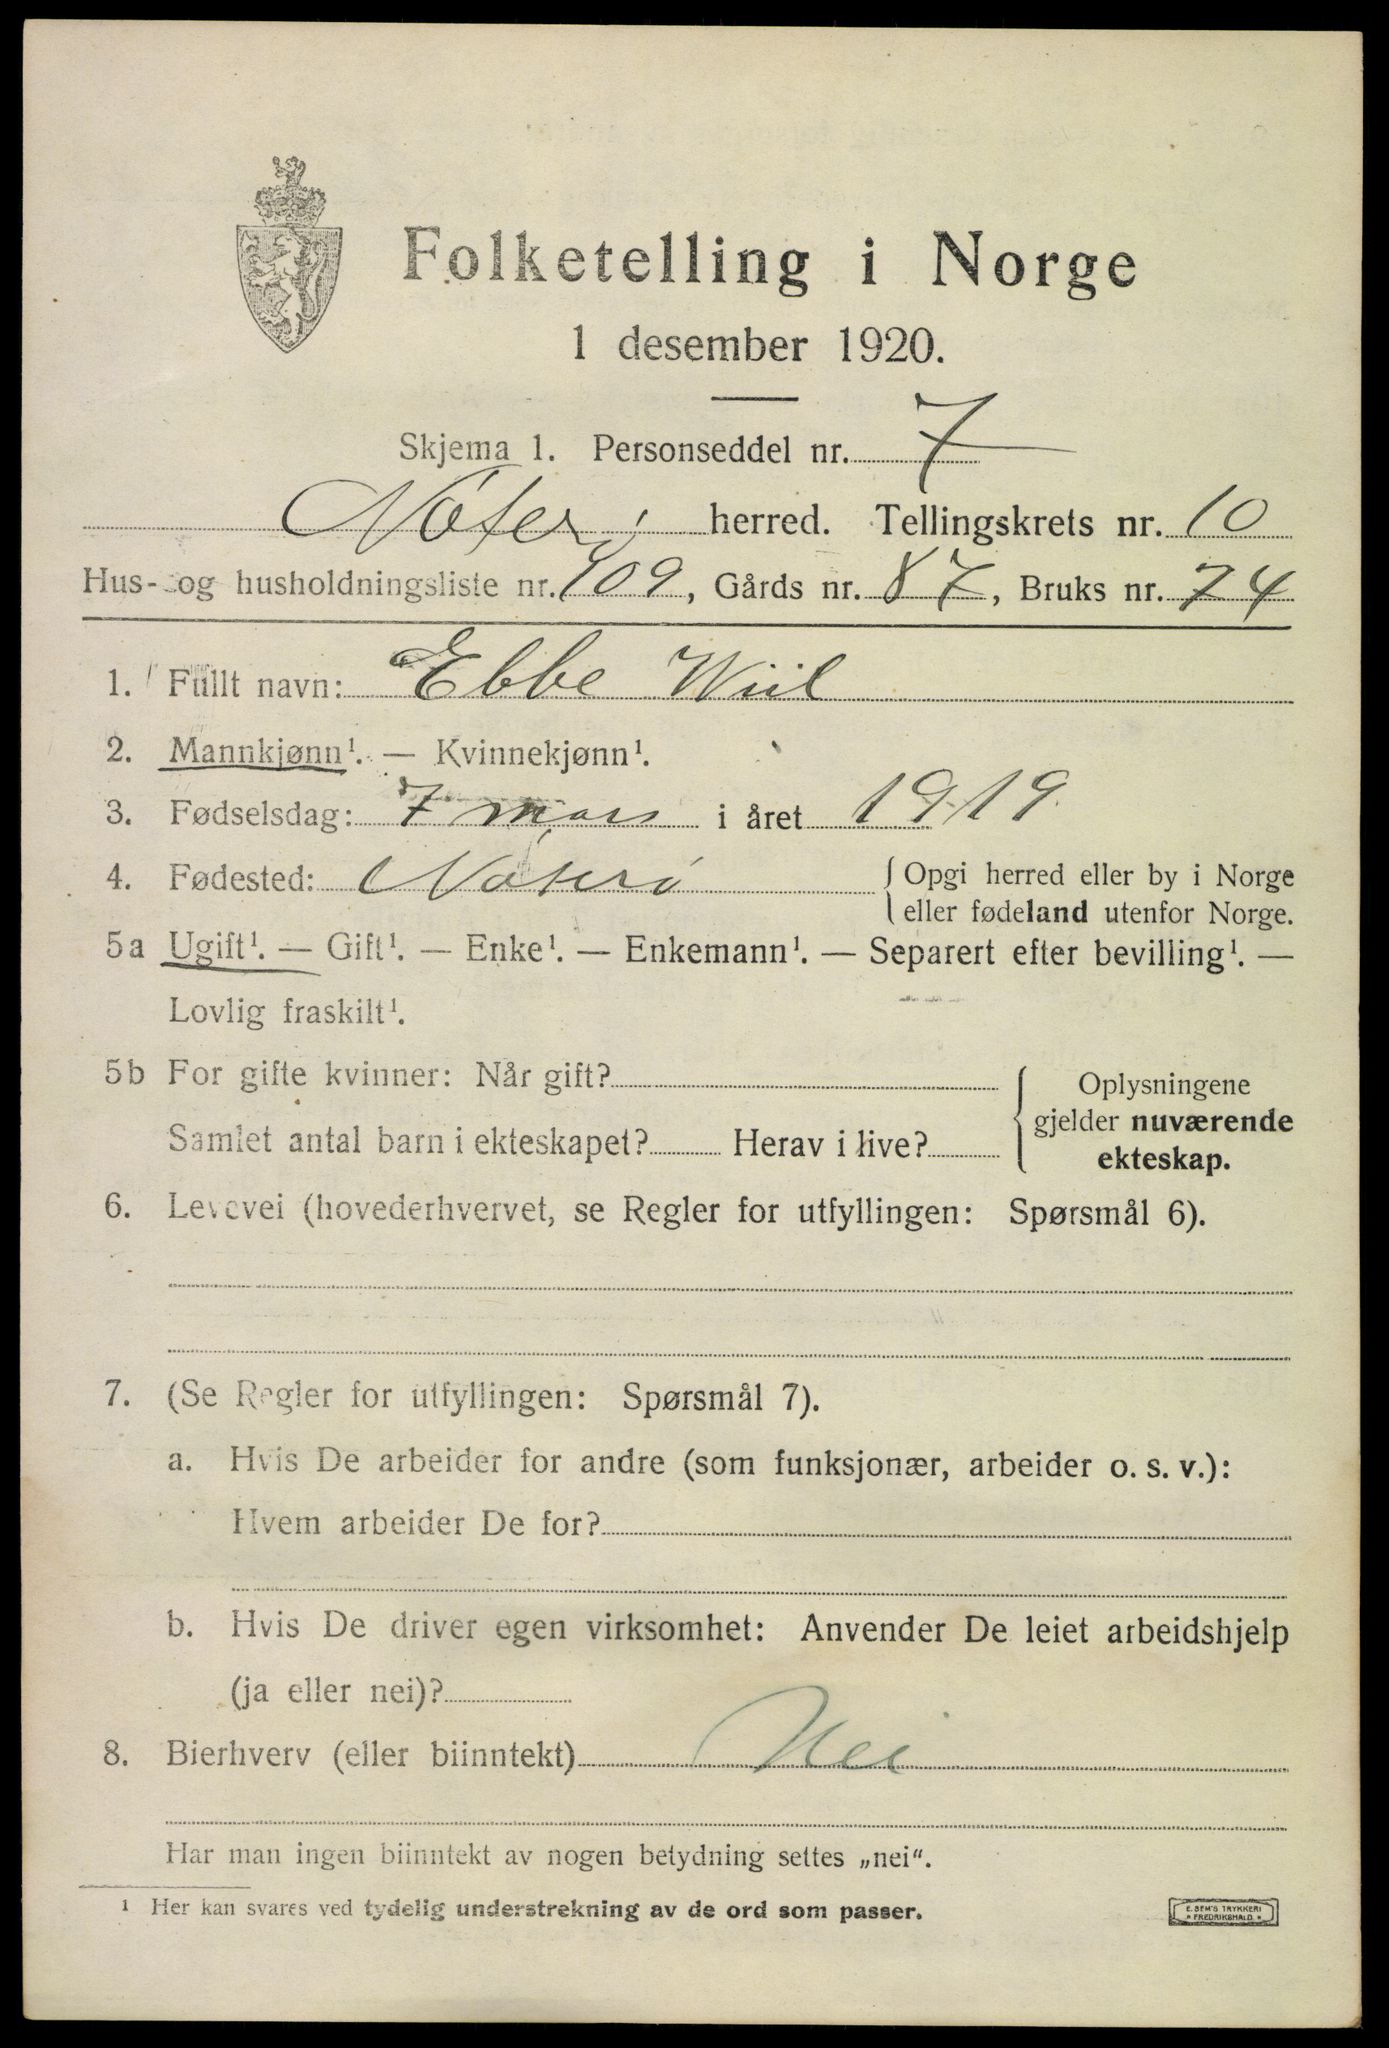 Folketelling i Norge
1 desember 1920.
Skjema 1. Personseddel nr. 7
Nøterø herred. Tellingskrets nr. 10
Hus- og husholdningsliste nr. 109, Gårds nr. 87, Bruks nr. 74
1. Fullt navn: Ebbe Wiil
2. Mannkjønn¹. — Kvinnekjønn¹.
3. Fødselsdag: 7 mars i året 1919
4. Fødested: Nøterø { Opgi herred eller by i Norge
eller fødeland utenfor Norge.
5a Ugift¹. — Gift¹. — Enke¹. — Enkemann¹. — Separert efter bevilling¹. —
Lovlig fraskilt¹.
5b For gifte kvinner: Når gift? { Oplysningene
gjelder nuværende
Samlet antal barn i ekteskapet? Herav i live?
ekteskap.
6. Levevei (hovederhvervet, se Regler for utfyllingen: Spørsmål 6).
7. (Se Regler for utfyllingen: Spørsmål 7).
a. Hvis De arbeider for andre (som funksjonær, arbeider o. s. v.):
Hvem arbeider De for?
b. Hvis De driver egen virksomhet: Anvender De leiet arbeidshjelp
(ja eller nei)?
8. Bierhverv (eller biinntekt) Nei
Har man ingen biinntekt av nogen betydning settes „nei“.
¹ Her kan svares ved tydelig understrekning av de ord som passer.
E. SEM'S TRYKKERI
* FREDRIKSHALD. *